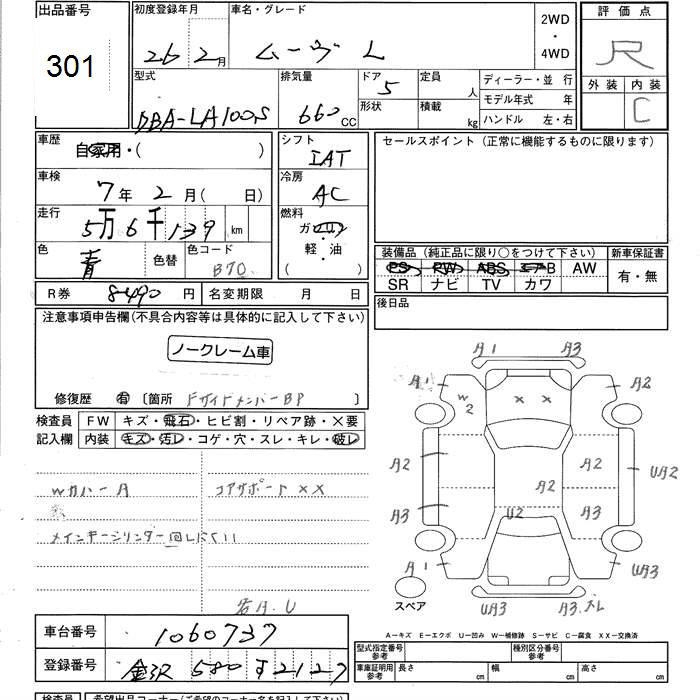 出品番号 初度登録年月 車名・グレード 2WD ・ 4WD 評価点
301 26年2月 ムーヴ L R
外装 内装
C
型式 排気量 ドア 定員 ディーラー・並 行
DBA-LA100S 660 CC 5 人 モデル年式 年
形状 積載 kg ハンドル 左・右
車歴 自家用・( ) シフト IAT セールスポイント (正常に機能するものに限ります)
車検 7年 2月( 日) 冷房 AC
走行 5万6千139 km 燃料 ガソリン
色 青 色替 色コード B70 軽・油 ( )
装備品 (純正品に限り○をつけて下さい) 新車保証書
PS PW ABS エアB AW 有・無
SR ナビ TV カワ
R券 8490 円 名変期限 月 日 後日品
注意事項申告欄(不具合内容等は具体的に記入して下さい)
ノークレーム車
修復歴 有 〔箇所 FサイドメンバーBP 〕
検査員 FW キズ・飛石・ヒビ割・リペア跡・×要
記入欄 内装 キズ・汚レ・コゲ・穴・スレ・キレ・破レ
Wカバー A コアサポート XX
メインキーシリンダー回しにくい
A1 A3
A1 W2 × × A2
A2 A2 A2 UA2
A3 U2 A3
A1 UA3
スペア UA3 A3.
若A.U
A-キズ E-エクボ U-凹み W-補修跡 S-サビ C-腐食 XX-交換済
車台番号 1060737
登録番号 金沢 580 す 2127
型式指定番号 参考 種別区分番号 参考
車庫証明用 参考 長さ cm 幅 cm 高さ cm
検査員 希望出品コーナー(ご希望のコーナー名を記入して下さい)